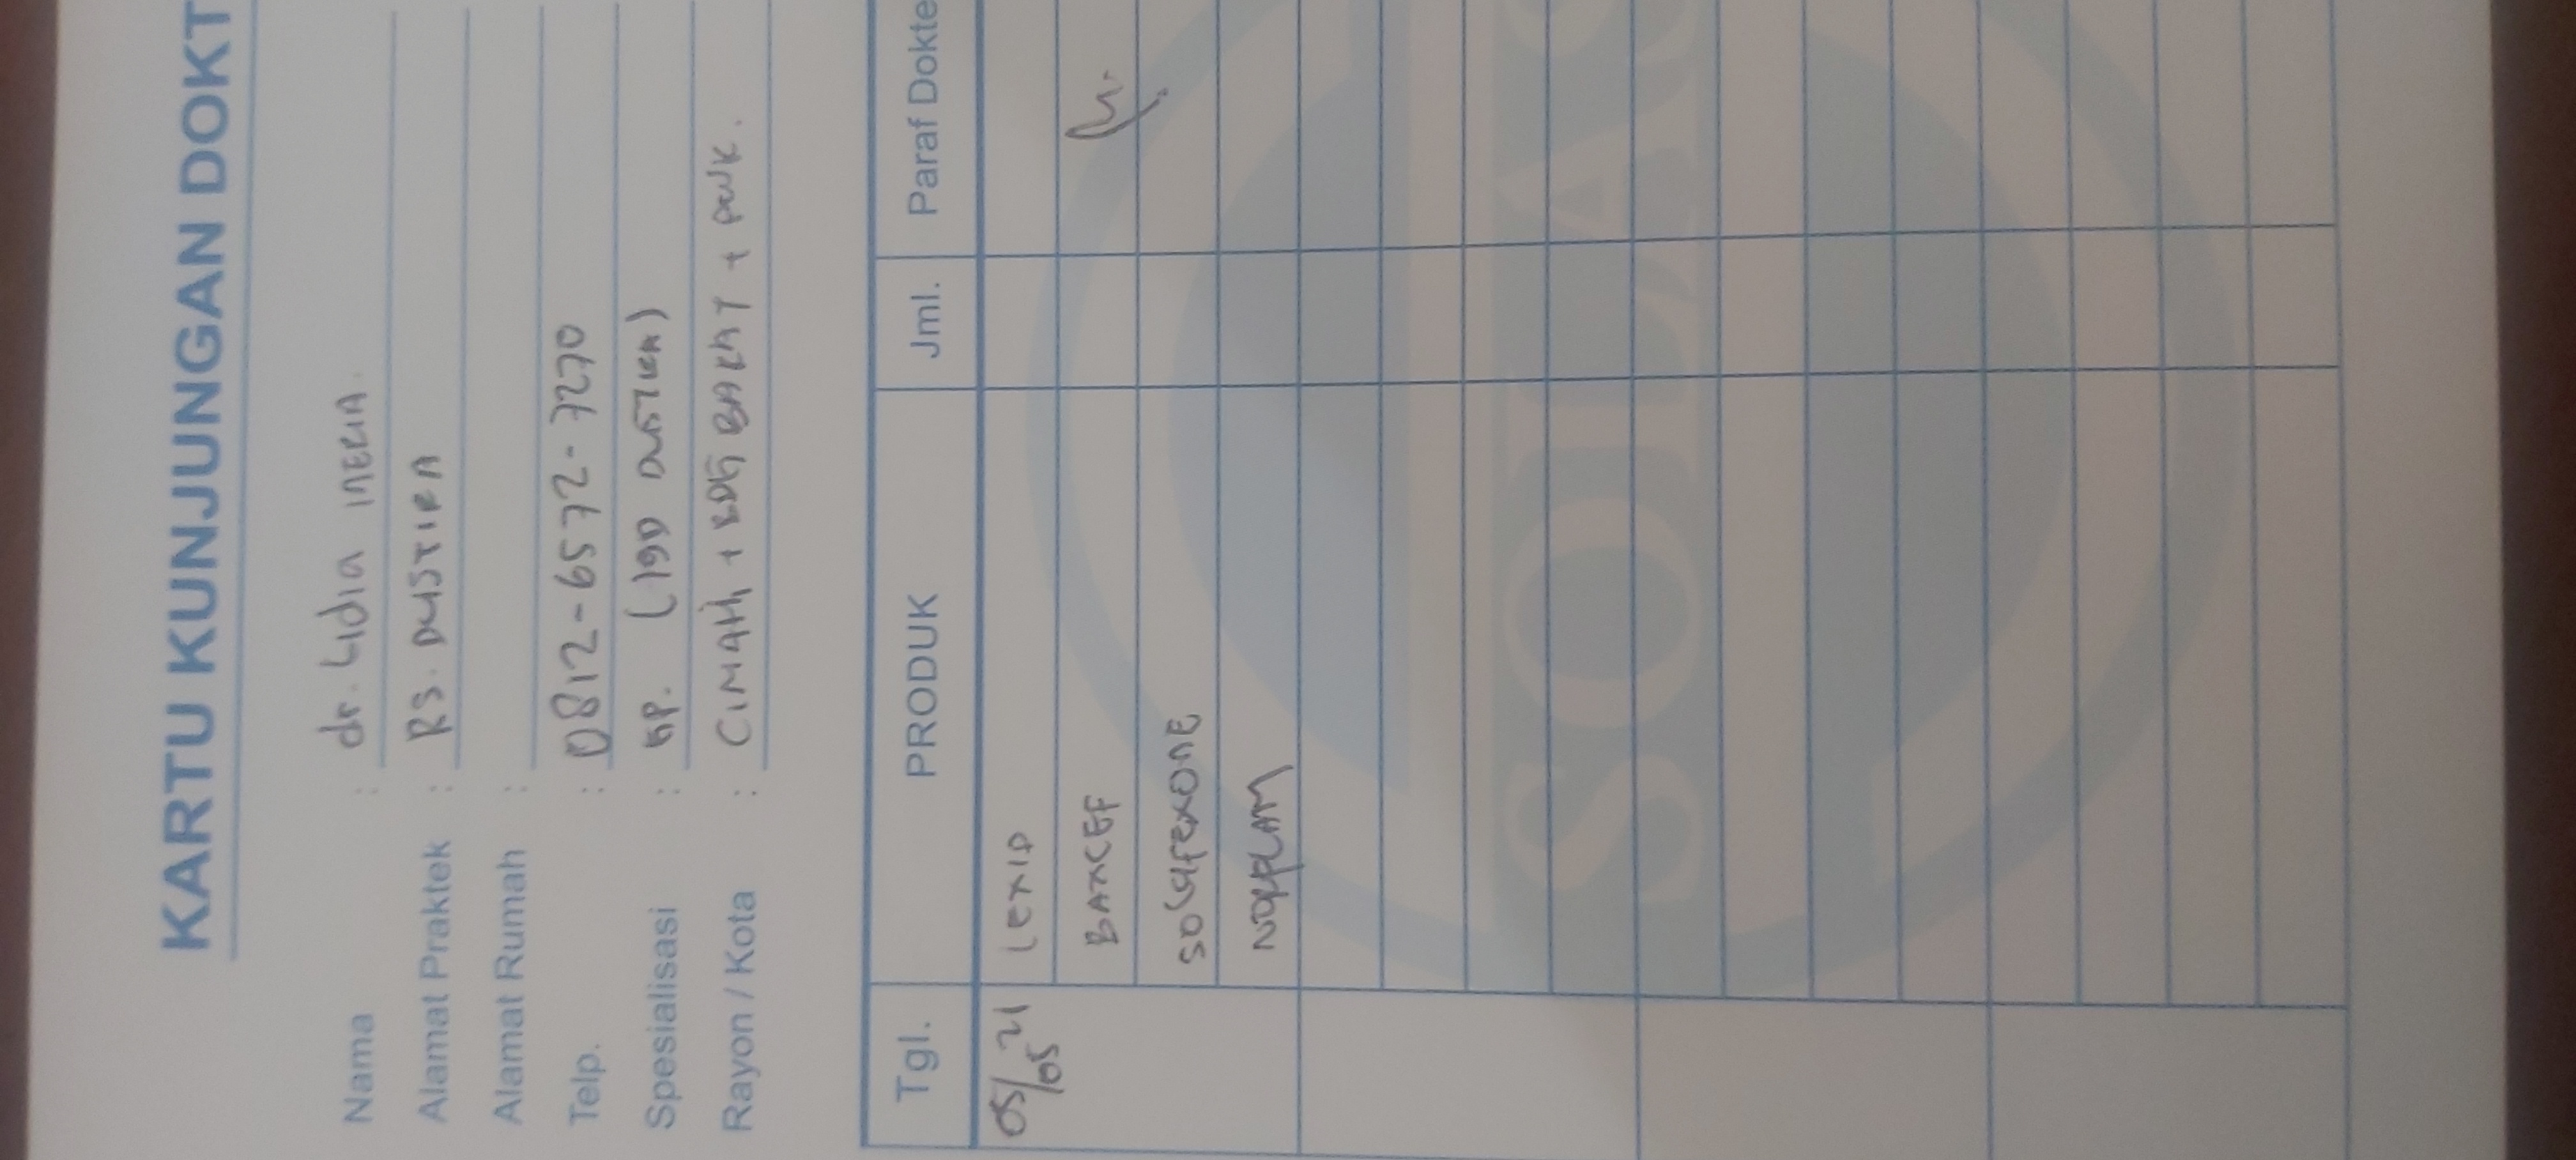 KARTU KUNJUNGAN DOKT
Nama : dr. Lidia INERIA
Alamat Praktek : RS. DUSTIRA
Alamat Rumah :
Telp. : 0812-6572-7270
Spesialisasi : GP. (IGD DUSTIRA)
Rayon / Kota : CIMAHI + BDG BARAT + PWK.
Tgl. PRODUK Jml. Paraf Dokte
05/05 21 LEXID
BAXCEF
SOLAFEXONE
NOFLAM
SOLAS